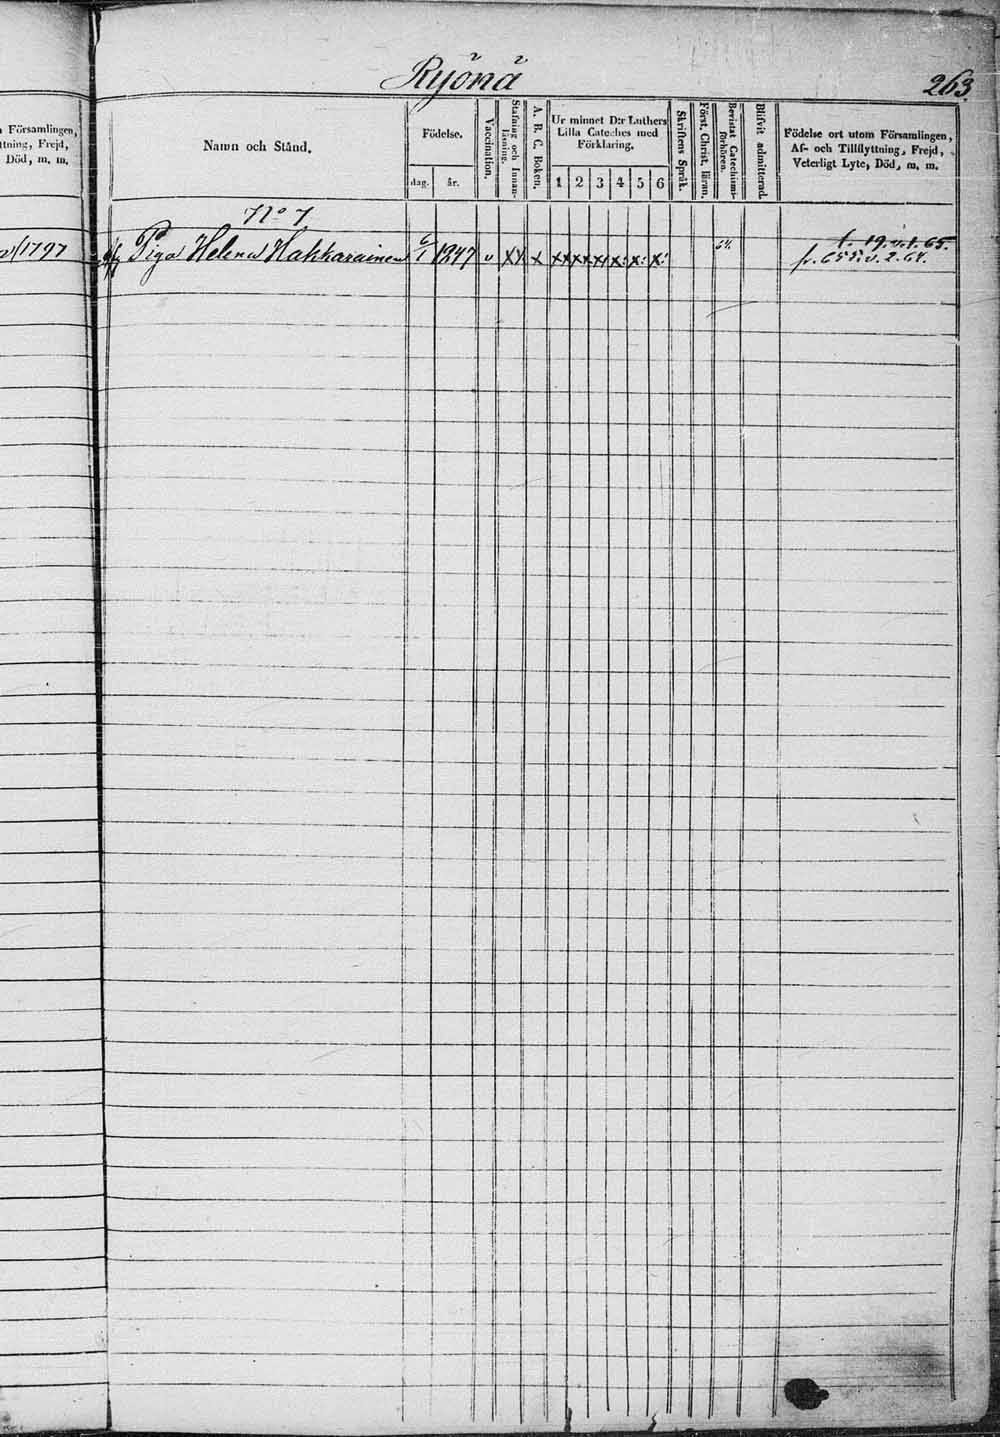 Ryönä
263.
Församlingen,
ttning, Frejd,
Död, m. m.
Namn och Stånd.
Födelse.
dag. år.
Vaccination.
Stafning och Innan-läsning.
A. B. C. Boken.
Ur minnet D:r Luthers
Lilla Cateches med
Förklaring.
1 2 3 4 5 6
Skriftens Språk.
Först. Christ. läran.
Bevistat Catechismi-förhören.
Blifvit admitterad.
Födelse ort utom Församlingen,
Af- och Tillflyttning, Frejd,
Veterligt Lyte, Död, m. m.
No 7
1797
Piga Helena Hakkarainen 6/1 1847 v xx x xx xx x x: x: x: 64. t. 19. v. 1. 65.
fr. 655. v. 2. 64.